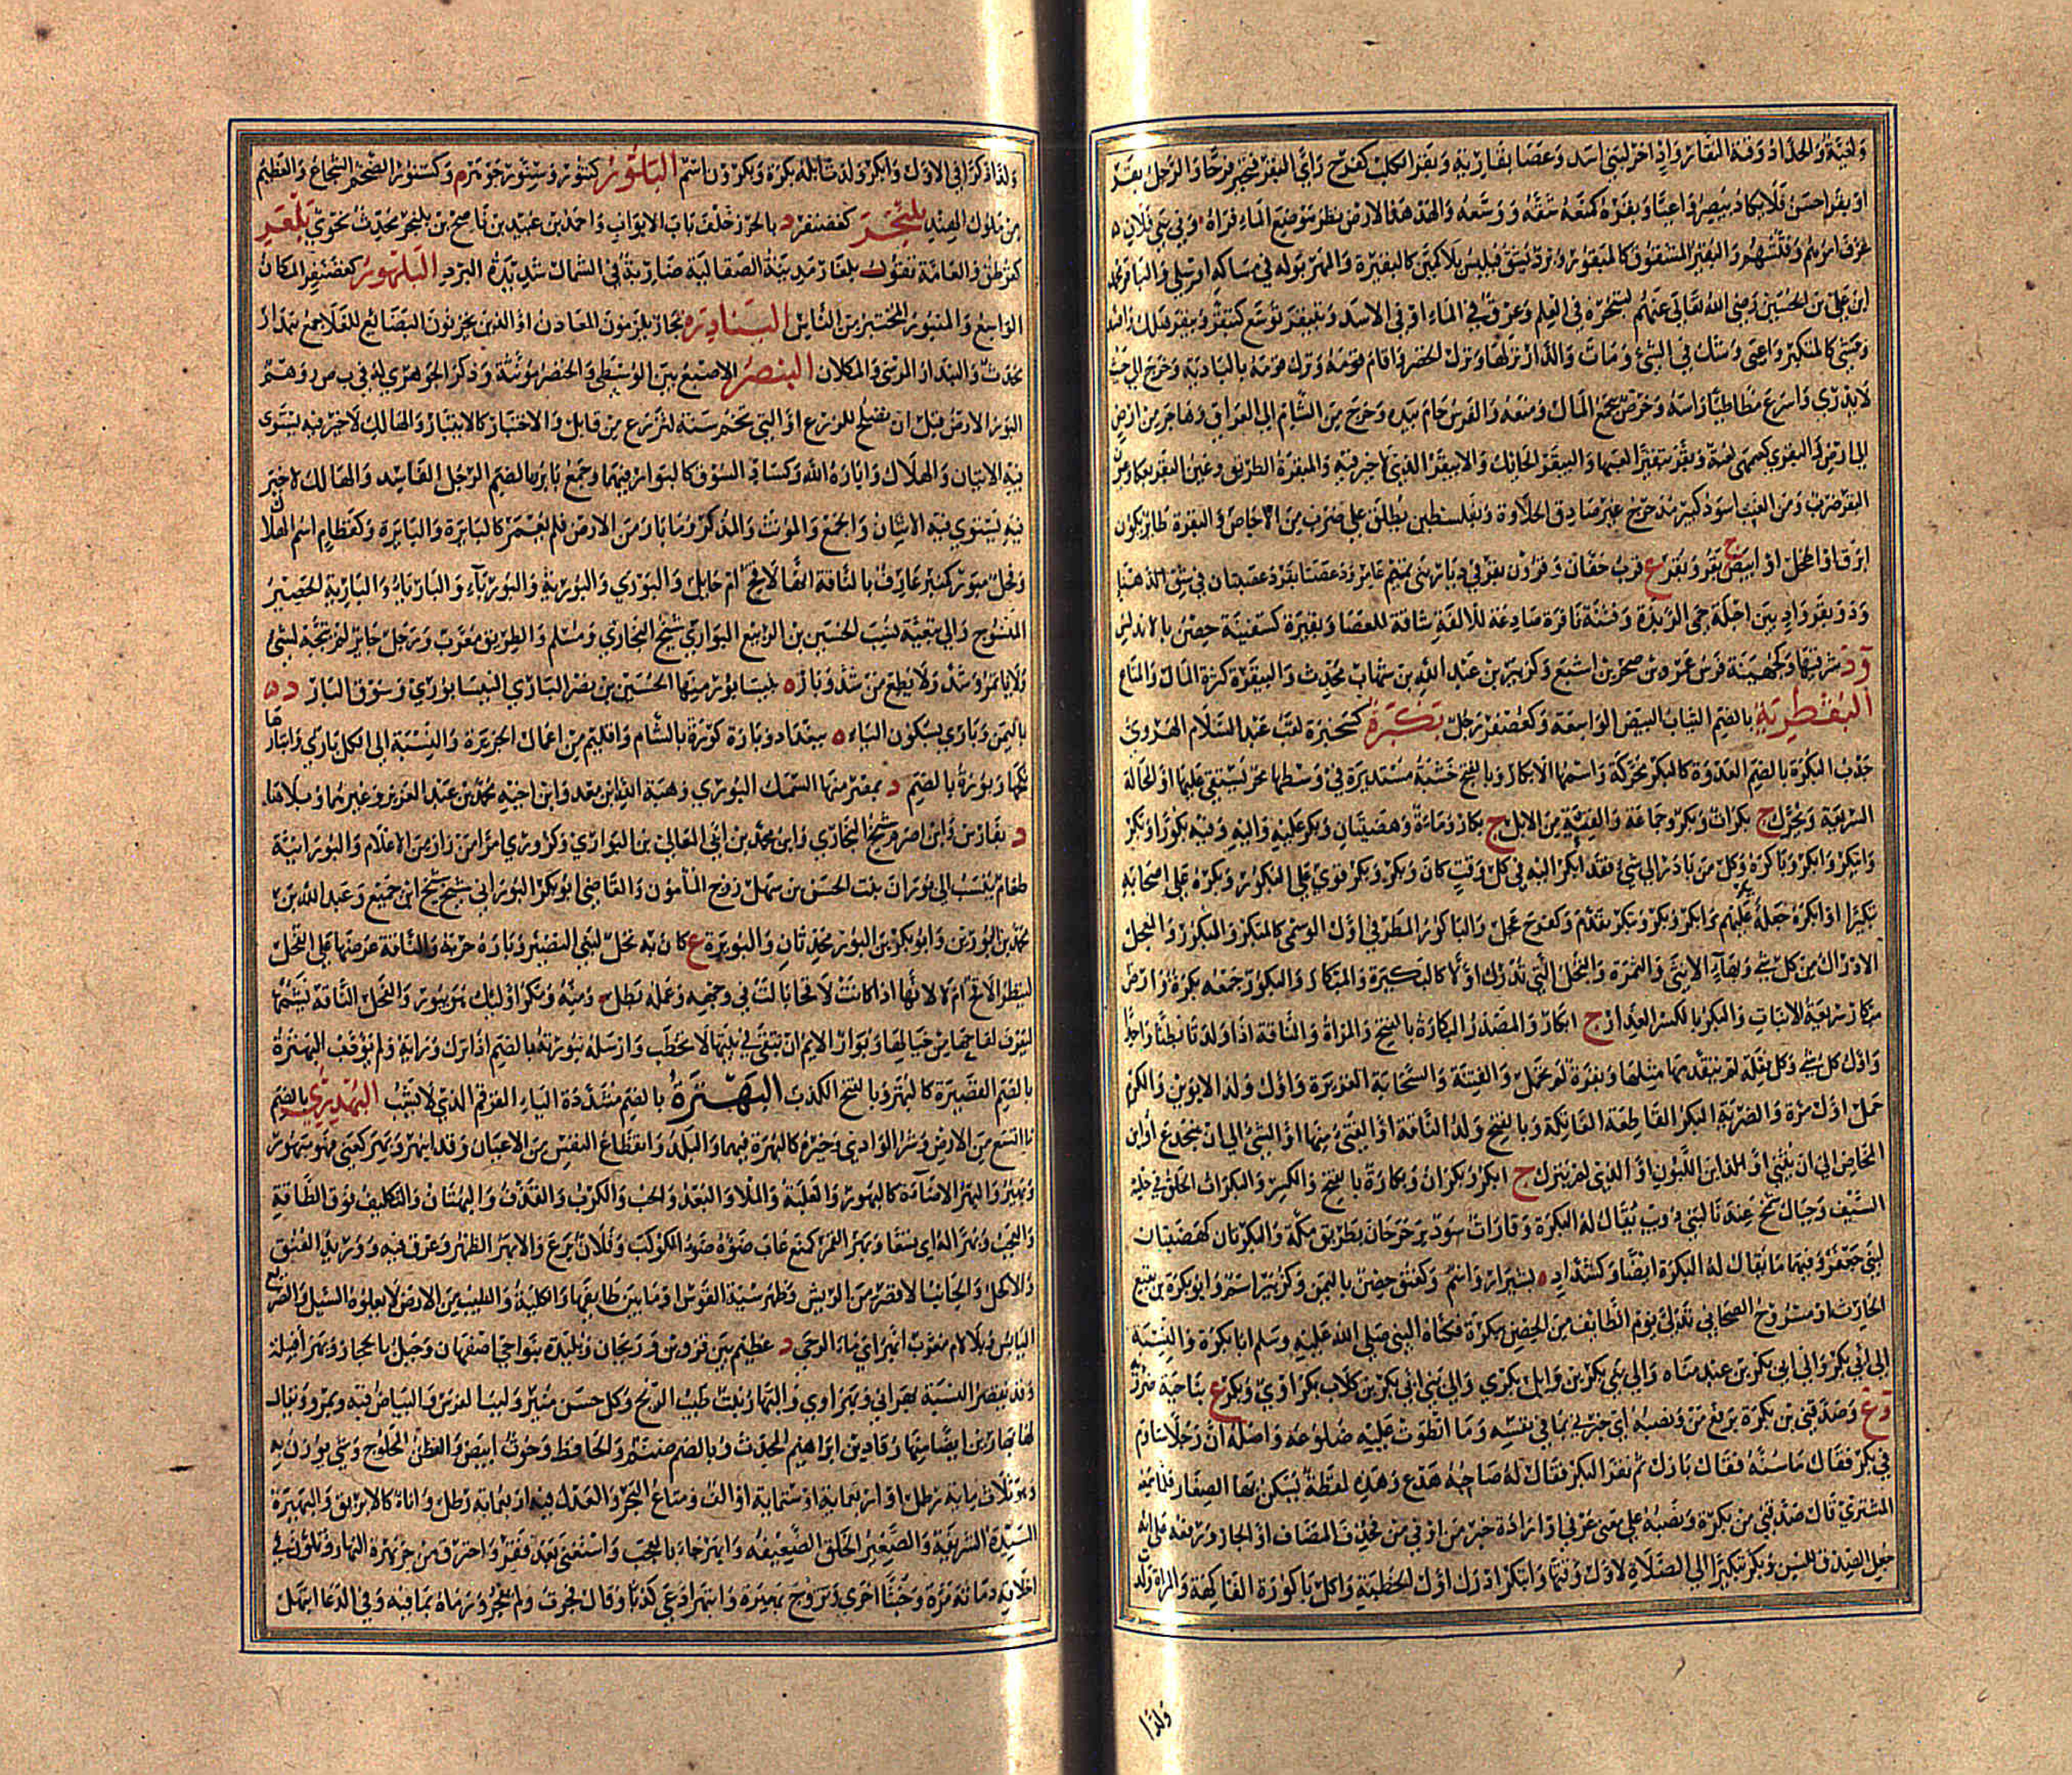 ولعبة والحداد وفة البقار واد اخر لبني اسد وعصا بقارية وبقر الكلب كفرح راي البقر فتحير فرحا والرجل بقر
او بقرا حسر فلا يكاد يبصر واعيا وبقره كمنعه شقه ووسعه والهدهد الارض نظر موضع الماء فراه وفي بني فلان
عرف امرهم وفتشهم والبقير المشقوق كالمبقور وبرد يشق فيلبس بلا كمين كالبقيرة والمهر يولد في ماسكة او سلى والباقر محمد
ابن علي بن الحسين رضي الله تعالى عنهم لتبحره في العلم وعرق في الماق والاسد وتبقر توسع كتبقر وبيقر هلك وفسد
ومشى كالمتكبر واعيى وشك في الشيء ومات والدار نزلها ونزل الحضر واقام وترك قومه بالبادية وخرج الى حيث
لا يدري واسرع مطاطيا راسه وحرص بجمع المال ومنعه والفرس خام بيده وخرج من الشام الى العراق وهاجر من ارض
الى ارض والبقيرى كسميهى لعبة وبقر تبقيرا لعبها والبيقر الحائك والابيقر الذي لا خير فيه والمبقرة الطريق وعين البقر بعكا وعيون
البقر ضرب ومن العنب اسود كبير مدحرج غير صادق الحلاوة وبفلسطين يطلق على ضرب من الاجاص والبقرة طاير يكون
ابرق او اكحل او ابيض ج بقر وبقر ع قرب خفان وقرون بقر في ديار بني عامر وعصتا بقر وعصيتان في شق الدهناء
وذو بقر واد بين اخيلة حمى الربذة وفتنة باقرة صادعة للالفة شاقة للعصا وبقيرة كسفينة حصن بالاندلس
ود شرقيها وكجهينة فرس عمرو بن صخر بن اشنع وكزبير بن عبد الله بن شهاب محدث والبيقرة كثرة المال والمتاع
البقطرية بالضم الثياب البيض الواسعة وكعصفر رجل بكبرة كحنجرة لقب عبد السلام الهروي
جد ث البكرة بالضم الغدوة كالبكر محركة واسمها الابكار وبالفتح خشبة مستديرة في وسطها محز يستقى عليها او المحالة
السريعة ويحرك ج بكرات وبكر وجماعة والفتية من الابل ج بكار وماءة وهضبتان وبكر عليه واليه وفيه بكورا وبكر
وابتكر وابكر وباكره وكل من بادر الى شيء فقد ابكر اليه في كل وقت كان وبكر وبكر قوي على البكور وبكره على اصحابه
تبكيرا او ابكره جعله يبكر عليهم وابكر وبكر وتبكر تقدم وكفرح عجل والباكور المطر في اول الوسمي كالمبكر والبكور والمعجل
الادراك من كل شيء وبهاء الانثى والثمرة والنخل التي تدرك اولا كالبكيرة والمبكار والبكور جمعه بكر وارض
مبكار سريعة الانبات والبكر بالكسر العذراء ج ابكار والمصدر البكارة بالفتح والمراة والناقة اذا ولدتا بطنا واحدا
واول كل شيء وكل فعلة لم يتقدمها مثلها وبقرة لم تحمل والفتية والسحابة الغزيرة واول ولد الابوين والكرم
حمل اول مرة والضربة البكر القاطعة القاتلة وبالفتح ولد الناقة او الفتي منها او الثني الى ان يجذع او ابن
المخاض الى ان يثني او ابن اللبون او الذي لم يبزل ج ابكر وبكران وبكارة بالفتح والكسر والبكرات الحلق في حلية
السيف وجبال شمخ عند ماء لبني ذؤيب يقال له البكرة وقارات سود برحرحان بطريق مكة والبكرتان هضبتان
لبني جعفر وفيهما ما يقال له البكرة ايضا وكشداد ة بشيراز واسم وكعنق حصن باليمن وكزبير اسم وابو بكرة نفيع بن
الحارث او مسروح الصحابي تدلى يوم الطائف من الحصن ببكرة فكناه النبي صلى الله عليه وسلم ابا بكرة والنسبة
الى ابي بكر والى ابي بكر بن عبد مناه والى بني بكر بن وايل بكري والى بني ابي بكر بن كلاب بكراوي وبكر ع بناحية ضرية
وع وصدقني سن بكره برفع سن ونصبه اي خبرني بما في نفسه وما انطوت عليه ضلوعه واصله ان رجلا ساوم
في بكر فقال ما سنه فقال بازل ثم نفر البكر فقال له صاحبه هدع هدع وهذه لفظة يسكن بها الصغار فلما سمعه
المشتري قال صدقني سن بكره ونصبه على معنى عرفني او ارادة خبر سن او في سن فحذف المضاف او الجار ورفعه على انه
جعل الصدق للسن وبكر تبكيرا الى الصلاة لاول وقتها وابتكر ادرك اول الخطبة واكل باكورة الفاكهة والمراة ولدت
ولدا
ولدا ذكرا في الاول وابكر ولد تابله بكرة وبكرون اسم البلور كتنور وسنور جوهر م وكسنور الضخم الشجاع والعظيم
من ملوك الهند بلنجر كغضنفر د بالخزر خلف باب الابواب واحمد بن عبيد بن ناصح بن بلنجر محدث نحوي بلغر
كقرطق والعامة تقول بلغار مدينة الصقالبة ضاربة في الشمال شديدة البرد البلهور كغضنفر المكان
الواسع والمنبور المختبر من الناس البنادرة تجار يلزمون المعادن او الذين يخزنون البضائع للغلا جمع بندار
محدث والبندار المرسى والمكلان البنصر الاصبع بين الوسطى والخنصر مونثة وذكر الجوهري له في ب ص ر وهم
البور الارض قبل ان تصلح للزرع او التي تجم سنة لتزرع من قابل والاختبار كالابتيار والهالك لا خير فيه يستوي
فيه الاثنان والهلاك وابارة الله وكساد السوق كالبوار فيهما وجمع باير وبالضم الرجل الفاسد والهالك لا خير
فيه يستوي فيه الاثنان والجمع والمونث والمذكر وما بار من الارض فلم يعمر كالبايرة والبايرة وكقطام اسم الهلاك
وفحل مبور كمنبر عارف بالناقة انها لاقح ام حايل والبوري والبورية والبورياء والبارياء والبارية الحصير
المنسوج والى بيعه نسب الحسين بن الربيع البواري شيخ البخاري ومسلم والطريق معرب ورجل حاير باير لم يتجه لشيء
ولا ياتمر رشدا ولا يطيع مرشدا وبار ة بنيسابور منها الحسين بن نصر الباري النيسابوري وسوق البار د
باليمن وباري بسكون الياء ة ببغداد وبارة كورة بالشام واقليم من اعمال الجزيرة والنسبة الى الكل باري وابتارها
نكحها وبورة بالضم د بمصر منها السمك البوري وهبة الله بن معد وابن اخيه محمد بن عبد العزيز وغيرهما وبلا هاء
د بفارس وابن اصرم شيخ البخاري وابن محمد بن ابي المعالي بن البواري وكزوري امرا من واد من الاعلام والبورانية
طعام ينسب الى بوران بنت الحسن بن سهل زوج المامون والقاضي ابو بكر البوراني شيخ شيخ ابن جميع وعبد الله بن
محمد بن بورين وابو بكر بن البور محدثان والبويرة ع كان به نخل لبني النضير وباره جربه والناقة عرضها على الفحل
لينظر الاقح ام لا لانها اذا كانت لاقحا بالت في وجهه وعمله بطل ومنه ومكر اوليك هو يبور والفحل الناقة تشممها
ليعرف لقاحها من حيالها وبوار الايم ان تبقى في بيتها لا تخطب وارسله ببوريه بالضم اذا ترك ورايه ولم يؤدب البهترة
بالضم القصيرة كالبهتر وبالفتح الكذب البهترة بالضم مشددة الياء القرقم الذي لا يشب البهدري بالضم
ما اتسع من الارض وشر الوادي وخيره كالبهرة فيهما والبلد وانقطاع النفس من الاعياء وقد انبهر وبهر كعني فهو مبهور
وبهير والبهر الاضاءة كالبهور والغلبة والملء والبعد والحب والكرب والقذف والبهتان والتكليف فوق الطاقة
والعجب وبهرا له اي تعسا وبهر القمر كمنع غلب ضوءه ضوء الكواكب وفلان برع والابهر الظهر وعرق فيه ووريد العنق
والاكحل والجانب الاقصر من الريش وظهر سية القوس او ما بين طايفها والكلية والطيب من الارض لا يعلوه السيل والضريع
اليابس وبلا لام معرب اب هر اي ماء الرحى د عظيم بين قزوين وزنجان وبليدة بنواحي اصفهان وجبل بالحجاز وبهراء قبيلة
وقد يقصر النسبة بهراني وبهراوي والبهار نبت طيب الريح وكل حسن منير ولبب الفرس والبياض فيه وة بمرو ويقال
لها بهارين ايضا منها رقاد بن ابراهيم المحدث وبالضم صنم والخطاف وحوت ابيض والقطن المحلوج وشيء يوزن به
وهو ثلاث ماية رطل او اربعماية او ستماية او الف ومتاع البحر والعدل فيه اربعماية رطل واناء كالابريق والبهيرة
السيدة الشريفة والصغيرة الخلق الضعيفة وابهر جاء بالعجب واستغنى بعد فقر واحترق من حر بهرة النهار وتلون في
اخلاقه دماثة مرة وخبثا اخرى وتزوج بهيرة وابتهر ادعى كذبا وقال فجرت ولم يفجر ورماه بما فيه وفي الدعا ابتهل